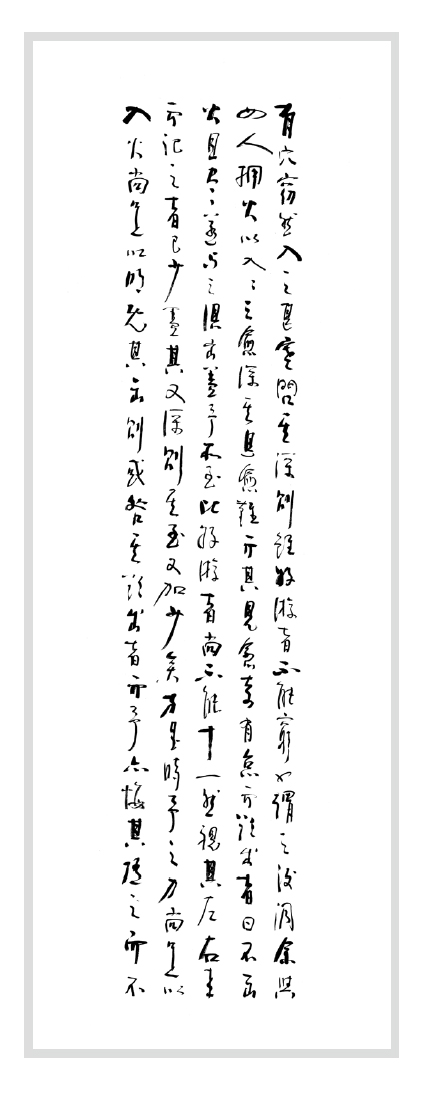 有穴窈然入之甚寒問其深則雖好游者不能窮也謂之後洞余與
四人擁火以入入之愈深其進愈難而其見愈奇有怠而欲出者曰不出
火且盡遂與之俱出蓋予所至比好游者尚不能十一然視其左右來
而記之者已少蓋其又深則其至又加少矣方是時予之力尚足以
入火尚足以明既其出則或咎其欲出者而予亦悔其隨之而不